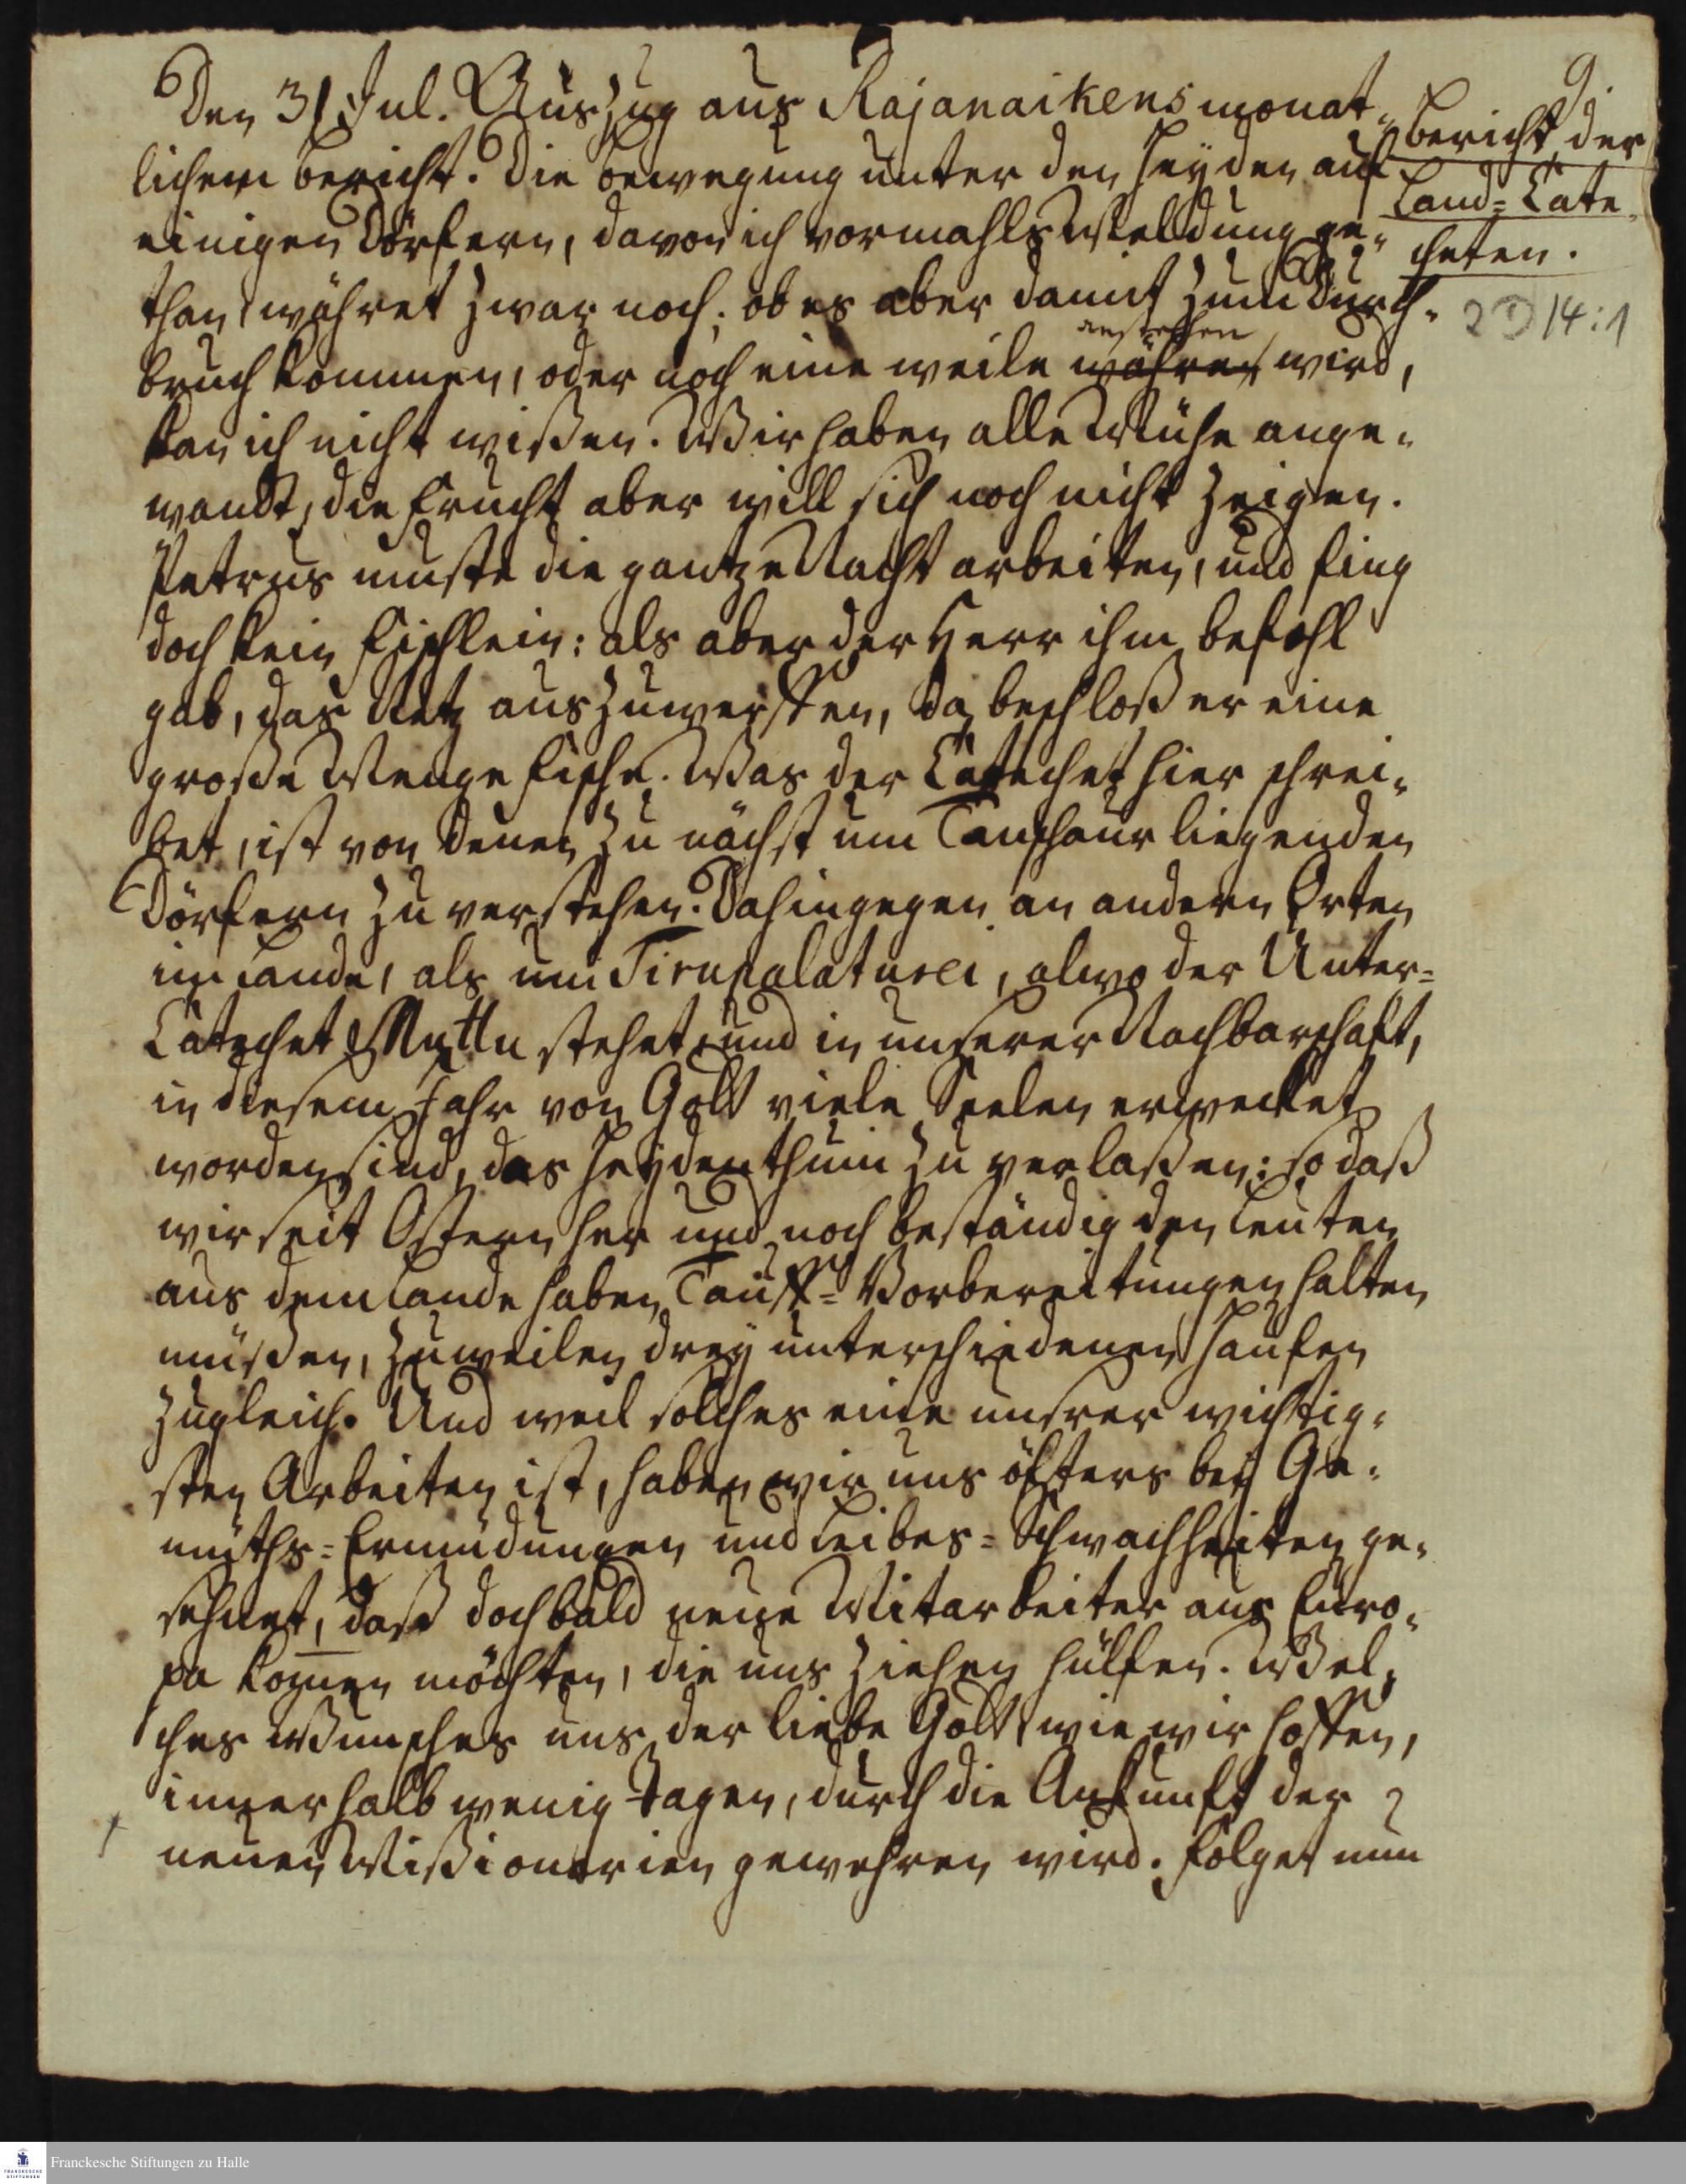 9.
Den 31 Jul. Auszug aus Rajanaikens monat-
lichem bericht. Die bewegung unter den Heyden auf
einigen Dörfern, davon ich vormahls Meldung ge-
than, währet zwar noch; ob es aber damit zum Durch-
bruch kommen, oder noch eine weile anstehen währen wird,
kan ich nicht wißen. Wir haben alle Mühe ange-
wandt, die Frucht aber will sich noch nicht zeigen.
Petrus muste die gantze Nacht arbeiten, und fing
doch kein Fischlein: als aber der Herr ihm befehl
gab, das Netz auszuwerffen, da beschloß er eine
große Menge Fische. Was der Catechet hier schrei-
bet, ist von denen zu nächst um Tanschaur liegenden
Dörfern zu verstehen. Dahingegen an andern Orten
im Lande, als um Tirupalaturei, alwo der Unter-
Catechet Muttu stehet, und in unserer Nachbarschaft,
in diesem Jahr von Gott viele Seelen erwecket
worden sind, das Heydenthum zu verlaßen: so daß
wir seit Ostern her und noch beständig den Leuten
aus dem Lande haben Tauff-Vorbereitungen halten
müßen, zuweilen drey unterschiedenen Haufen
zugleich. Und weil solches eine unsrer wichtig-
sten Arbeiten ist, haben wir uns öfters bey Ge-
müths-Ermüdungen und Leibes-Schwachheiten ge-
sehnet, daß doch bald neue Mitarbeiter aus Euro-
pa kom̄en möchten, die uns ziehen hülfen. Wel-
ches Wunsches uns der liebe Gott, wie wir hoffen,
innerhalb wenig Tagen, durch die Ankunft der
neuen Missionarien gewehren wird. Folget nun
bericht der
Land-Cate-
cheten.
14:1
Franckesche Stiftungen zu Halle